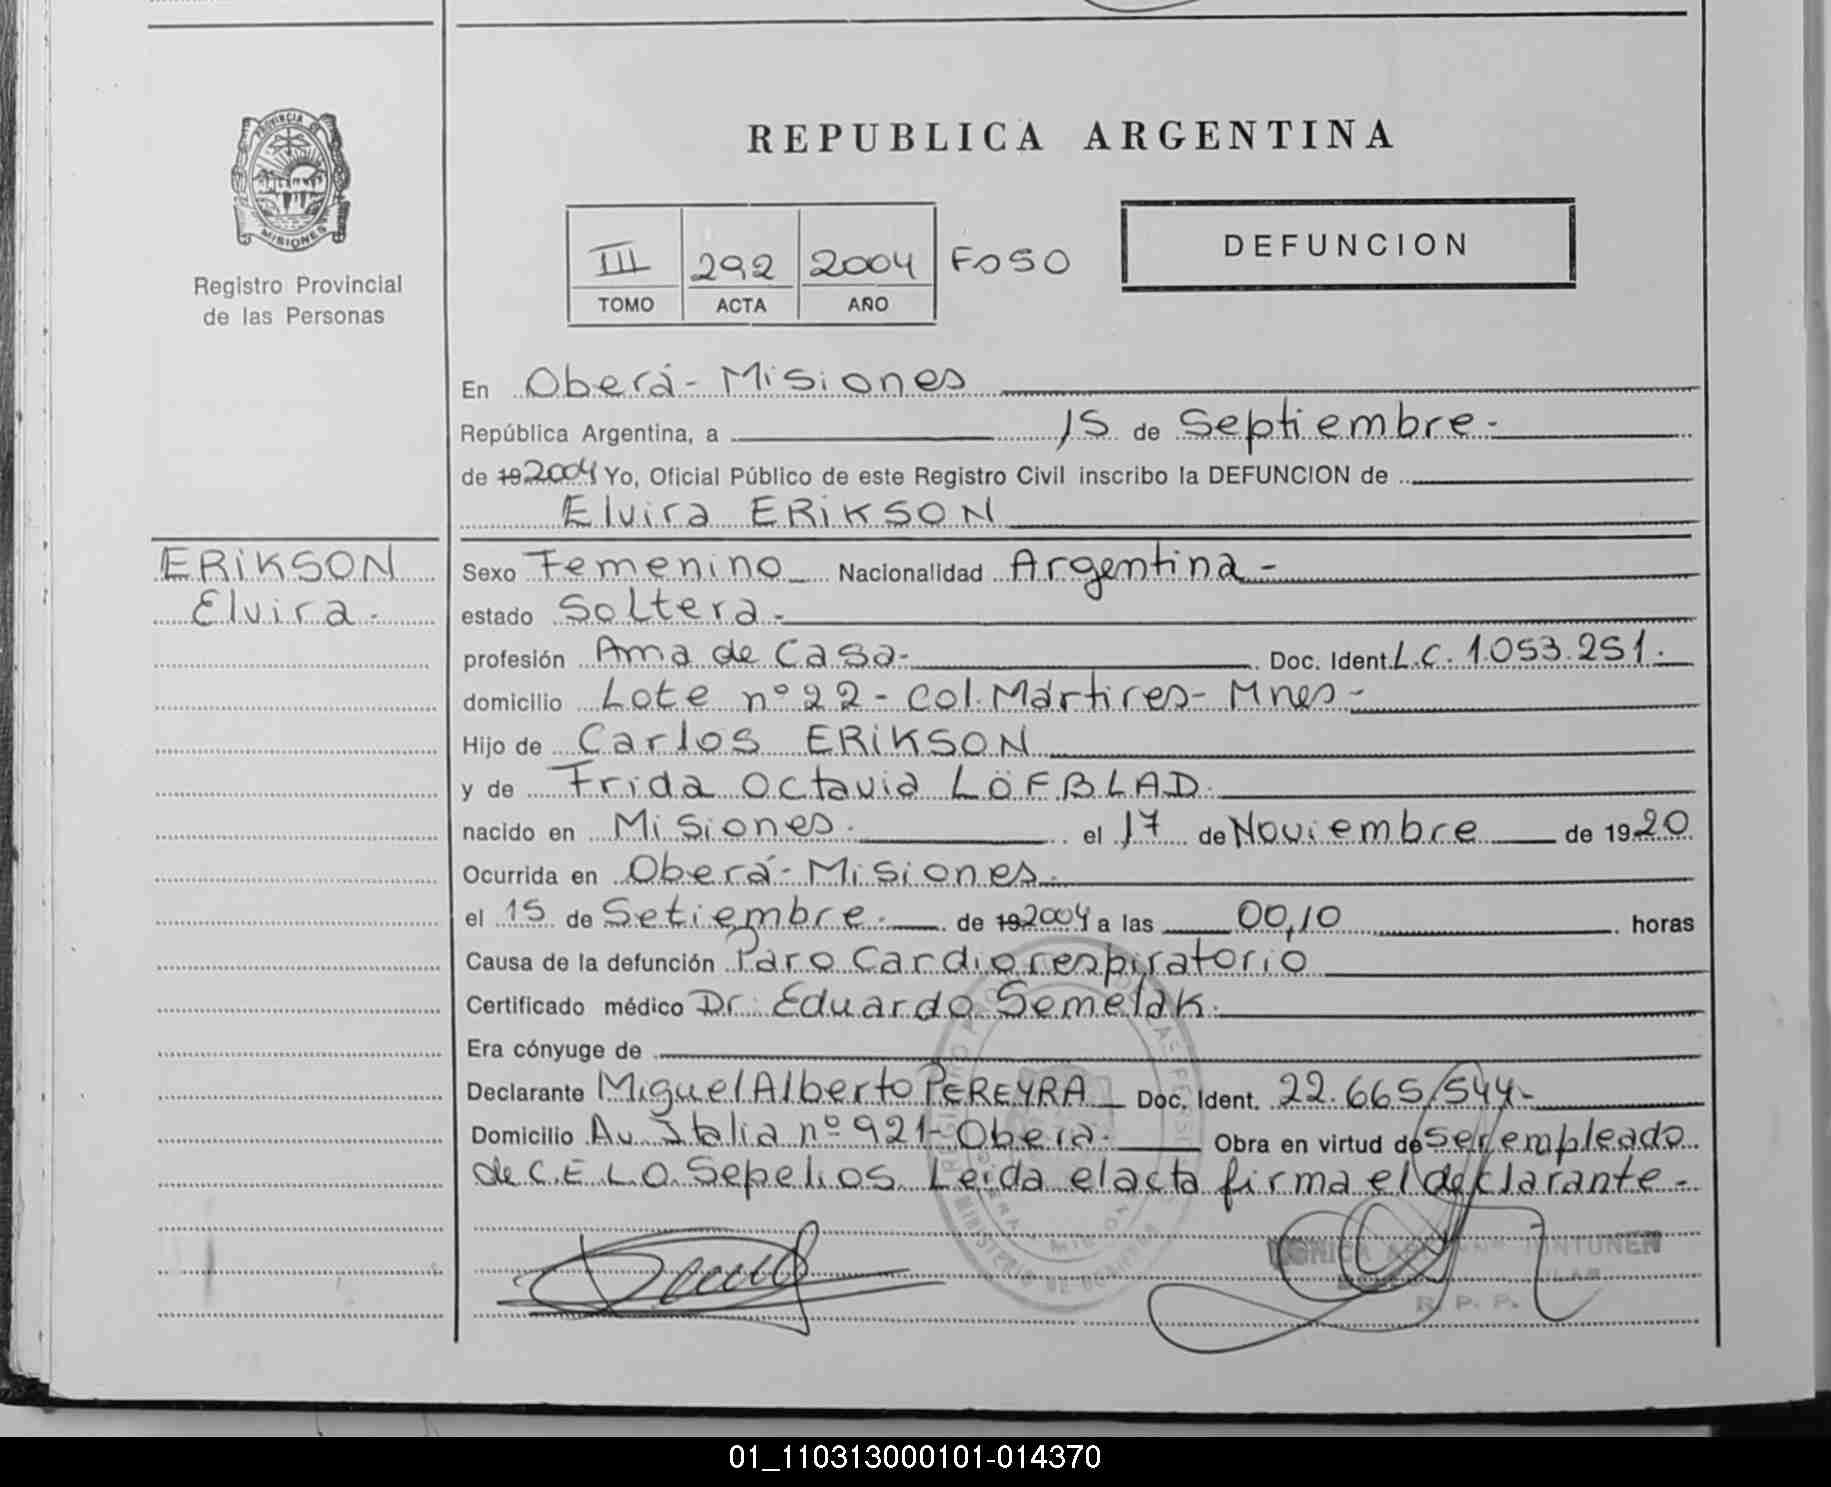 REPUBLICA ARGENTINA
PROVINCIA DE
MISIONES
Registro Provincial
de las Personas
III 292 2004 Fo50
TOMO ACTA AÑO
DEFUNCION
En Oberá - Misiones
República Argentina, a 15 de Septiembre.
de 19 2004 Yo, Oficial Público de este Registro Civil inscribo la DEFUNCION de
Elvira ERIKSON
ERIKSON
Elvira.
Sexo Femenino Nacionalidad Argentina -
estado Soltera.
profesión Ama de Casa. Doc. Ident. L.C. 1.053.251.
domicilio Lote nº 22 - Col. Mártires - Mnes -
Hijo de Carlos ERIKSON
y de Frida Octavia LÖFBLAD.
nacido en Misiones. el 17 de Noviembre de 19 20
Ocurrida en Oberá - Misiones.
el 15 de Setiembre. de 19 2004 a las 00,10 horas
Causa de la defunción Paro Cardiorespiratorio
Certificado médico Dr. Eduardo Semelak.
Era cónyuge de
Declarante Miguel Alberto PEREYRA Doc. Ident. 22.665.544-
Domicilio Av. Italia nº 921 - Oberá. Obra en virtud de ser empleado
de C.E.L.O. Sepelios. Leida el acta firma el declarante -
JUNTUNEN
R. P. P.
01_110313000101-014370